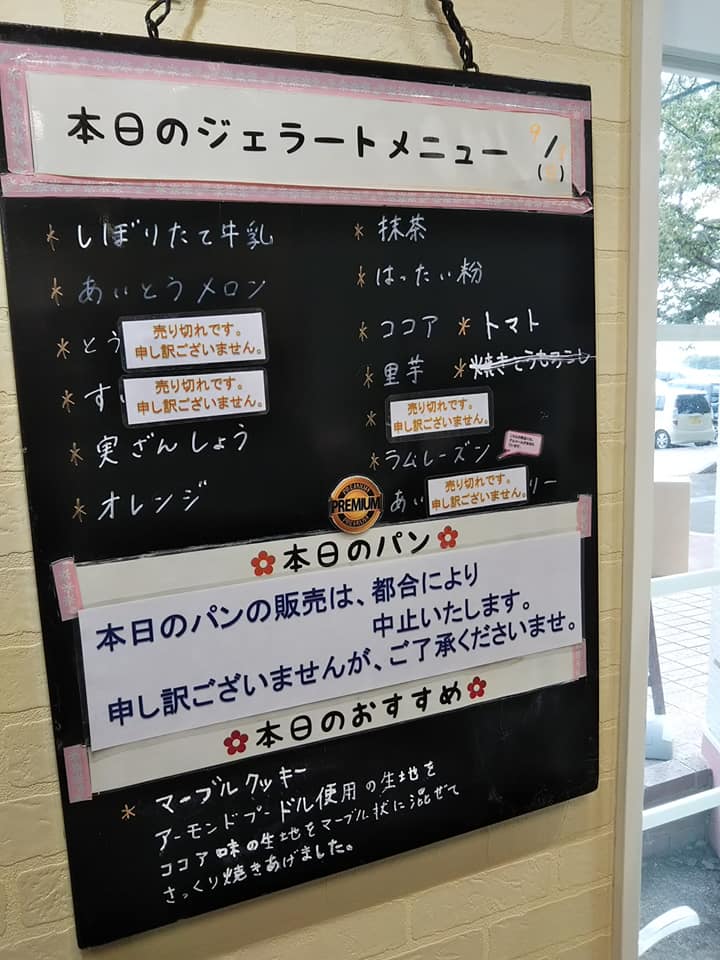 本日のジェラートメニュー 9/
* しぼりたて牛乳
* あいとうメロン
* とう
売り切れです。
申し訳ございません。
* す
売り切れです。
申し訳ございません。
* 実ざんしょう
* オレンジ
* 抹茶
* はったい粉
* ココア * トマト
* 里芋 * 焼きとうもろこし
*
売り切れです。
申し訳ございません。
* ラムレーズン
あい
売り切れです。
申し訳ございません。
リー
PREMIUM
本日のパン
本日のパンの販売は、都合により
中止いたします。
申し訳ございませんが、ご了承くださいませ。
本日のおすすめ
* マーブルクッキー
アーモンドプードル使用の生地を
ココア味の生地をマーブル状に混ぜて
さっくり焼きあげました。